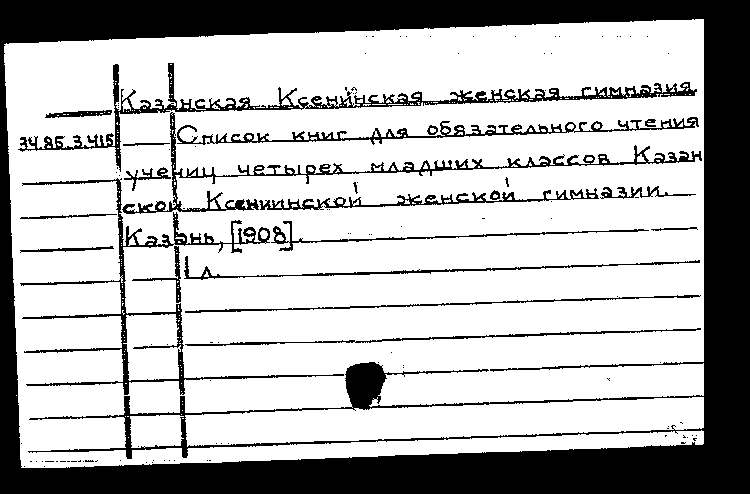 Казанская Ксенинская женская гимназия.
34.85.3.415 Список книг для обязательного чтения
учениц четырех младших классов Казан
ской Ксениинской женской гимназии.
Казань, [1908].
1 л.